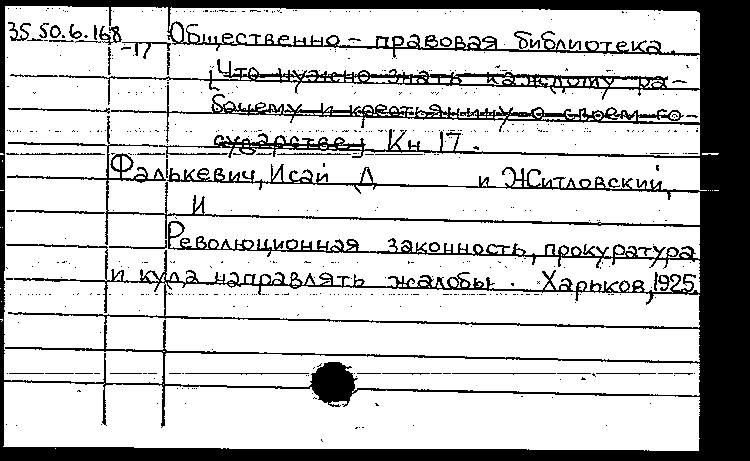 35.50.6.168 Общественно - правовая библиотека.
-17
[Что нужно знать каждому ра-
бочему и крестьянину о своем го-
сударстве] Кн 17.
Фалькевич, Исай Д и Житловский,
И
Революционная законность, прокуратура
и куда направлять жалобы. Харьков, 1925.